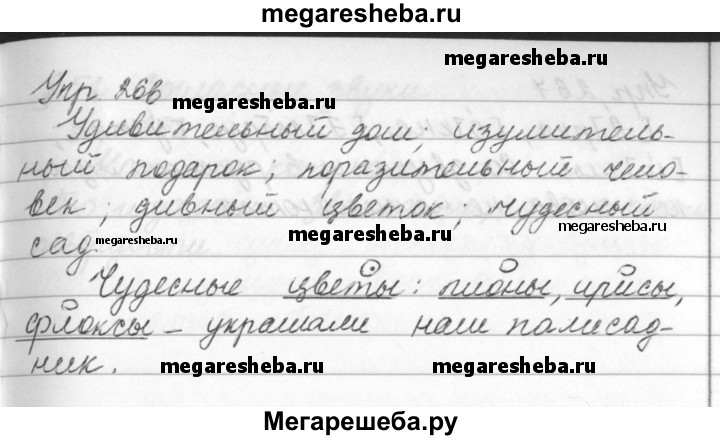 megaresheba.ru
Упр 268
megaresheba.ru
Удивительный дом; изумитель-
ный подарок; поразительный чело-
век; дивный цветок; чудесный
megaresheba.ru
сад.
megaresheba.ru
megaresheba.ru
Чудесные цветы: пионы, ирисы,
флоксы – украшали наш палисад-
ник.
megaresheba.ru
megaresheba.ru
Мегарешеба.ру